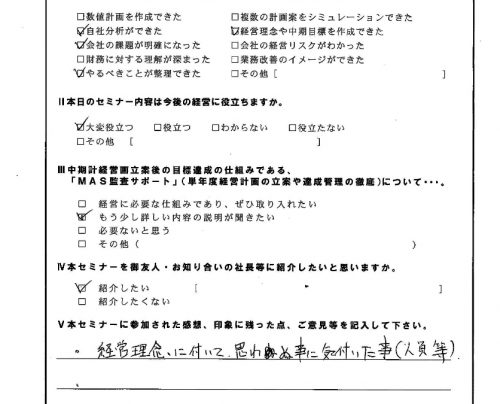 □数値計画を作成できた □複数の計画案をシミュレーションできた
☑自社分析ができた ☑経営理念や中期目標を作成できた
☑会社の課題が明確になった □会社の経営リスクがわかった
□財務に対する理解が深まった □業務改善のイメージができた
☑やるべきことが整理できた □その他 [ ]
Ⅱ本日のセミナー内容は今後の経営に役立ちますか。
☑大変役立つ □役立つ □わからない □役立たない
□その他 [ ]
Ⅲ中期計経営画立案後の目標達成の仕組みである、
「MAS監査サポート」(単年度経営計画の立案や達成管理の徹底)について・・・。
□ 経営に必要な仕組みであり、ぜひ取り入れたい
☑ もう少し詳しい内容の説明が聞きたい
□ 必要ないと思う
□ その他 ( )
Ⅳ本セミナーを御友人・お知り合いの社長等に紹介したいと思いますか。
☑ 紹介したい [ ]
□ 紹介したくない
Ⅴ本セミナーに参加された感想、印象に残った点、ご意見等を記入して下さい。
・ 経営理念に付いて、思わぬ事に気付いた事(人員等)
・